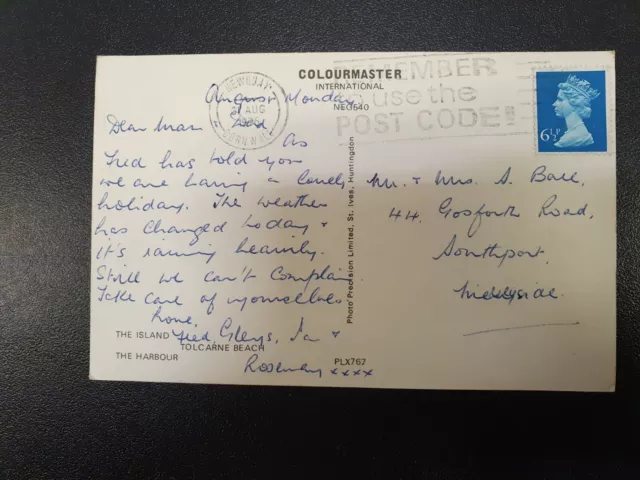 COLOURMASTER
INTERNATIONAL
NEQ540
NEWQUAY
AUG
CORNWALL
REMEMBER
to use the
POST CODE!!
6½P
August Monday
Dear Mam & Dad
As
Fred has told you
we are having a lovely
holiday. The weather
has changed today &
it's raining heavily.
Still we can't complain
Take care of yourselves
Love,
Fred Glenys, Ian &
Rosemary xxxx
Mr. & Mrs. S. Ball,
44 Gosforth Road,
Southport,
Merseyside.
Photo Precision Limited, St. Ives, Huntingdon
THE ISLAND
TOLCARNE BEACH
THE HARBOUR
PLX767